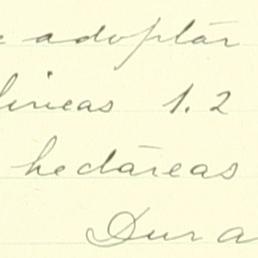 e adoptár
lineas 1.2
hectáreas
Dura